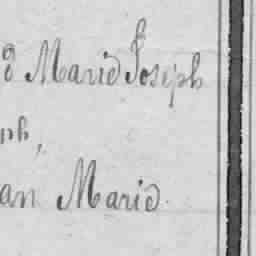 é Marie Joseph
ph,
an Marie.